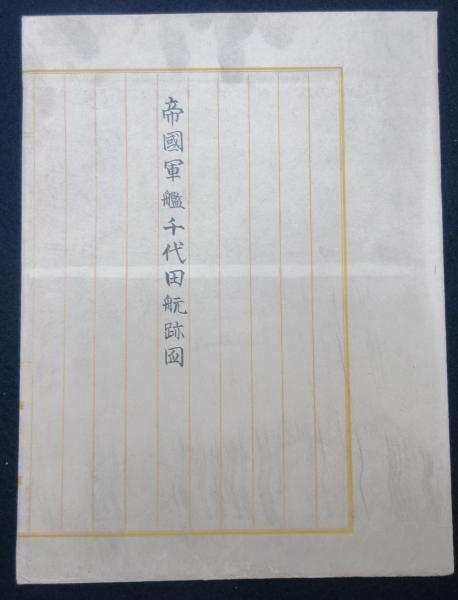 帝國軍艦千代田航跡図